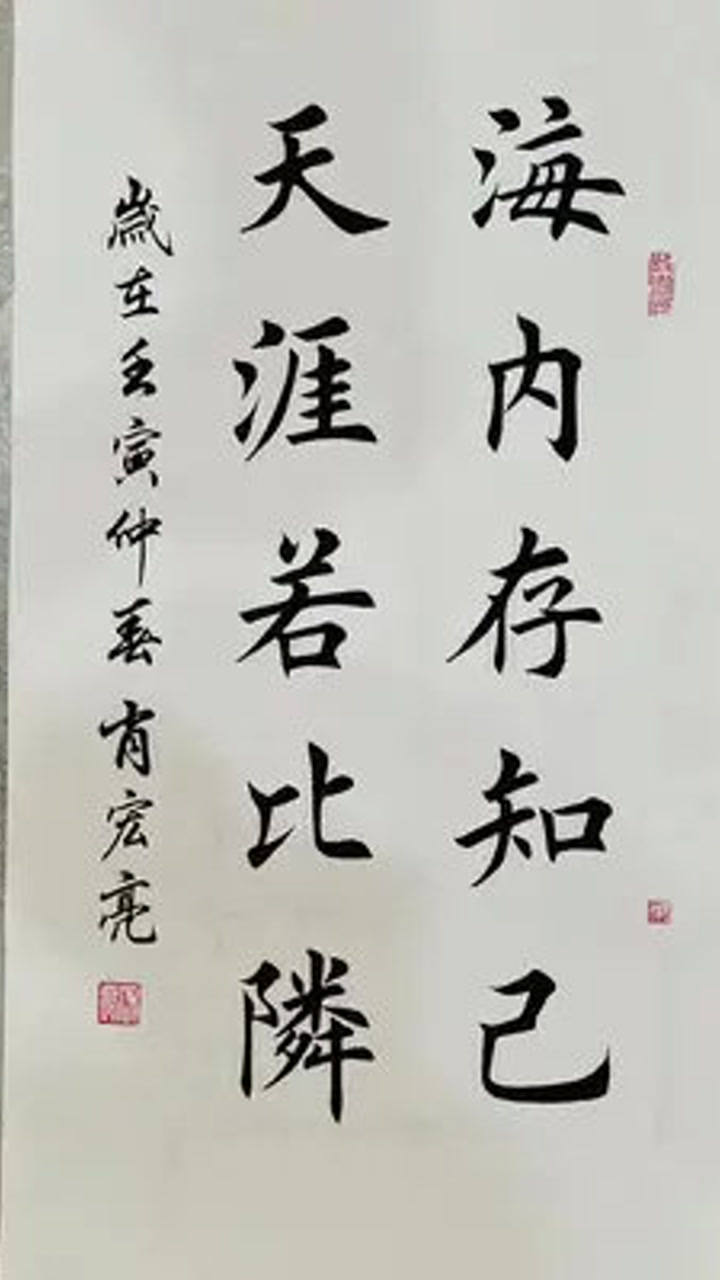 海内存知己
天涯若比隣
歲在壬寅仲春肖宏亮